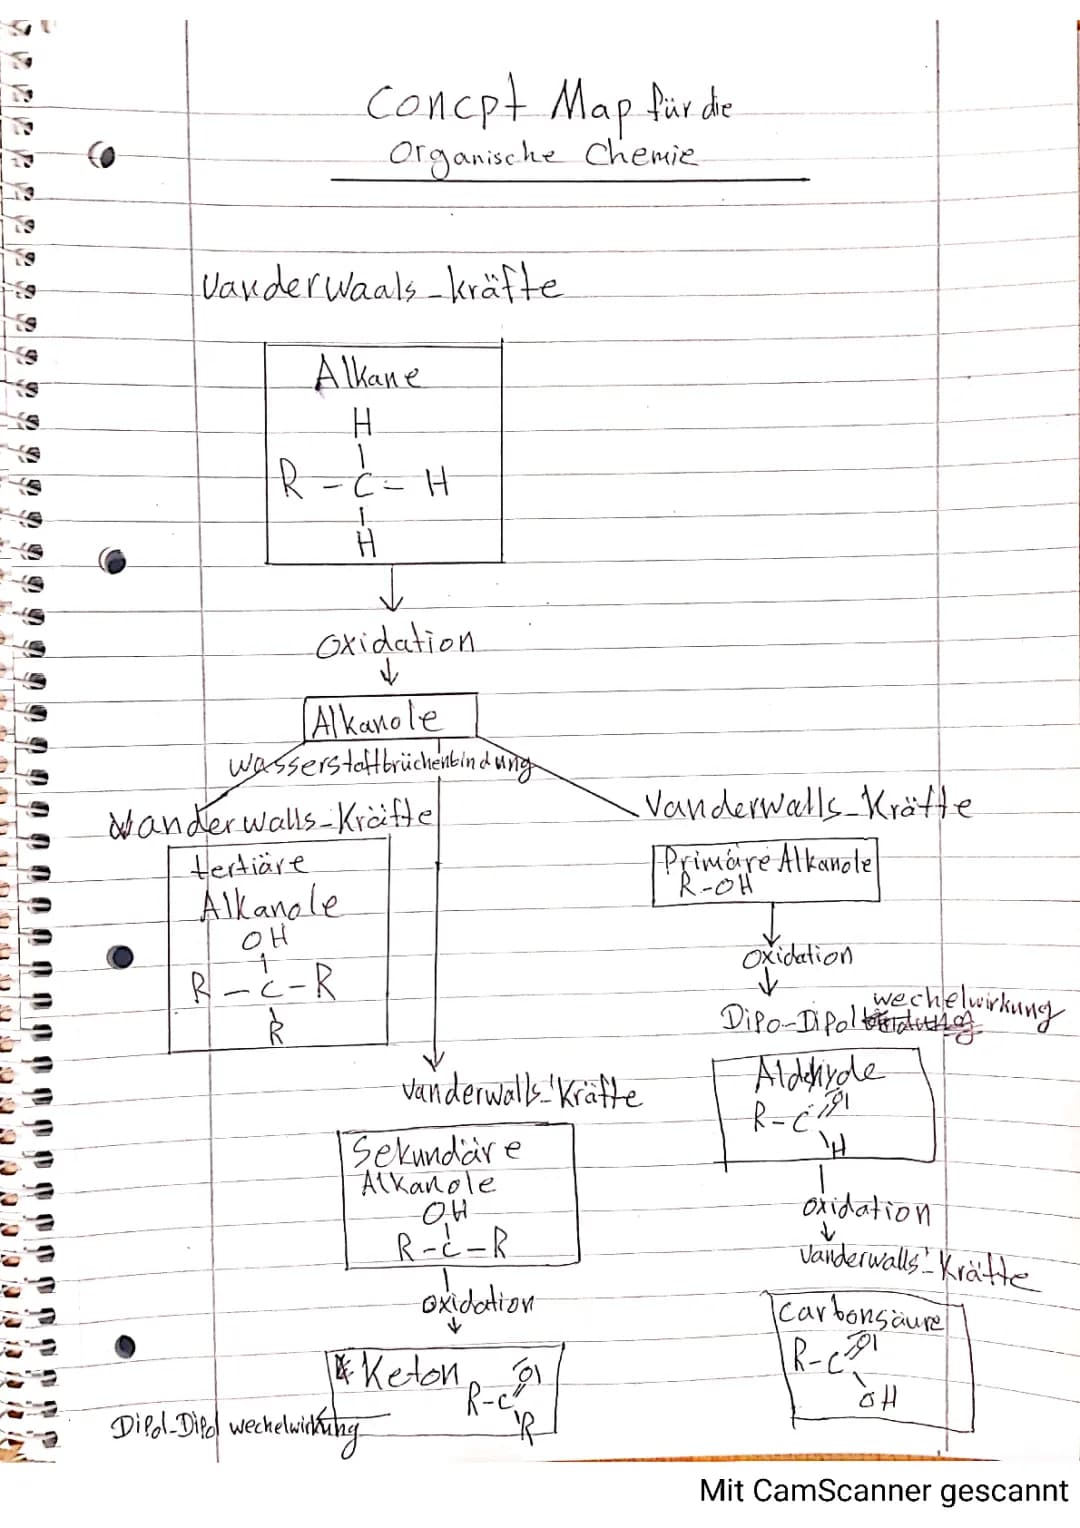 Concpt Map für die
Organische Chemie
Vanderwaals-kräfte
Alkane
H
R - C - H
H
Oxidation
Alkanole
wasserstoffbrüchenbindung
Vanderwalls-Kräfte
Vanderwalls-Kräfte
tertiäre
Alkanole
OH
R - C - R
R
Primäre Alkanole
R-OH
Oxidation
wechelwirkung
Dipo-Dipol
Aldehyde
R-C O
H
Vanderwalls-Kräfte
Sekundäre
Alkanole
OH
R-C-R
Oxidation
Oxidation
Vanderwalls-Kräfte
Carbonsäure
R-C O
OH
Keton
R-C O
R
Dipol-Dipol wechelwirkung
Mit CamScanner gescannt